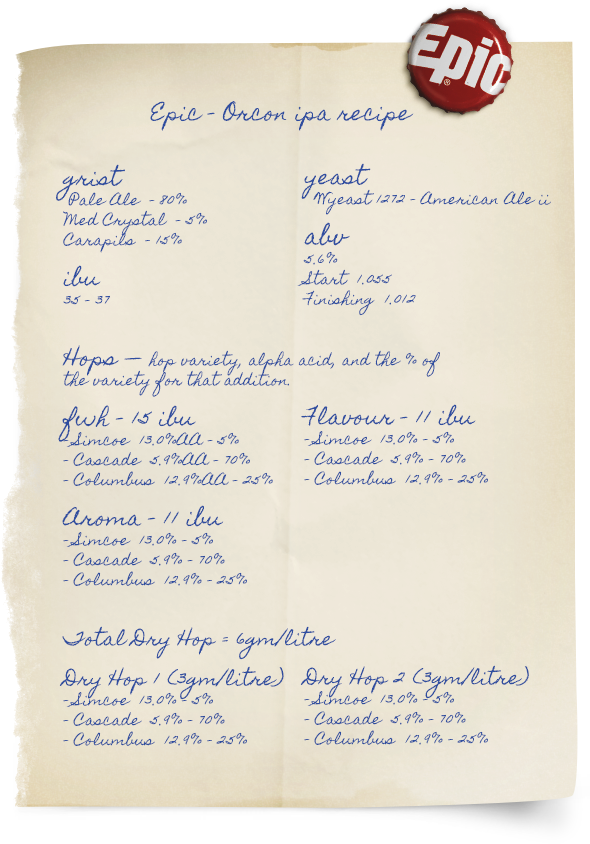 Epic
Epic - Orcon ipa recipe
grist
Pale Ale - 80%
Med Crystal - 5%
Carapils - 15%
ibu
35 - 37
yeast
Wyeast 1272 - American Ale ii
abv
5.6%
Start 1.055
Finishing 1.012
Hops — hop variety, alpha acid, and the % of
the variety for that addition.
fwh - 15 ibu
- Simcoe 13.0%AA - 5%
- Cascade 5.9%AA - 70%
- Columbus 12.9%AA - 25%
Flavour - 11 ibu
- Simcoe 13.0% - 5%
- Cascade 5.9% - 70%
- Columbus 12.9% - 25%
Aroma - 11 ibu
- Simcoe 13.0% - 5%
- Cascade 5.9% - 70%
- Columbus 12.9% - 25%
Total Dry Hop = 6gm/litre
Dry Hop 1 (3gm/litre)
- Simcoe 13.0% - 5%
- Cascade 5.9% - 70%
- Columbus 12.9% - 25%
Dry Hop 2 (3gm/litre)
- Simcoe 13.0% - 5%
- Cascade 5.9% - 70%
- Columbus 12.9% - 25%